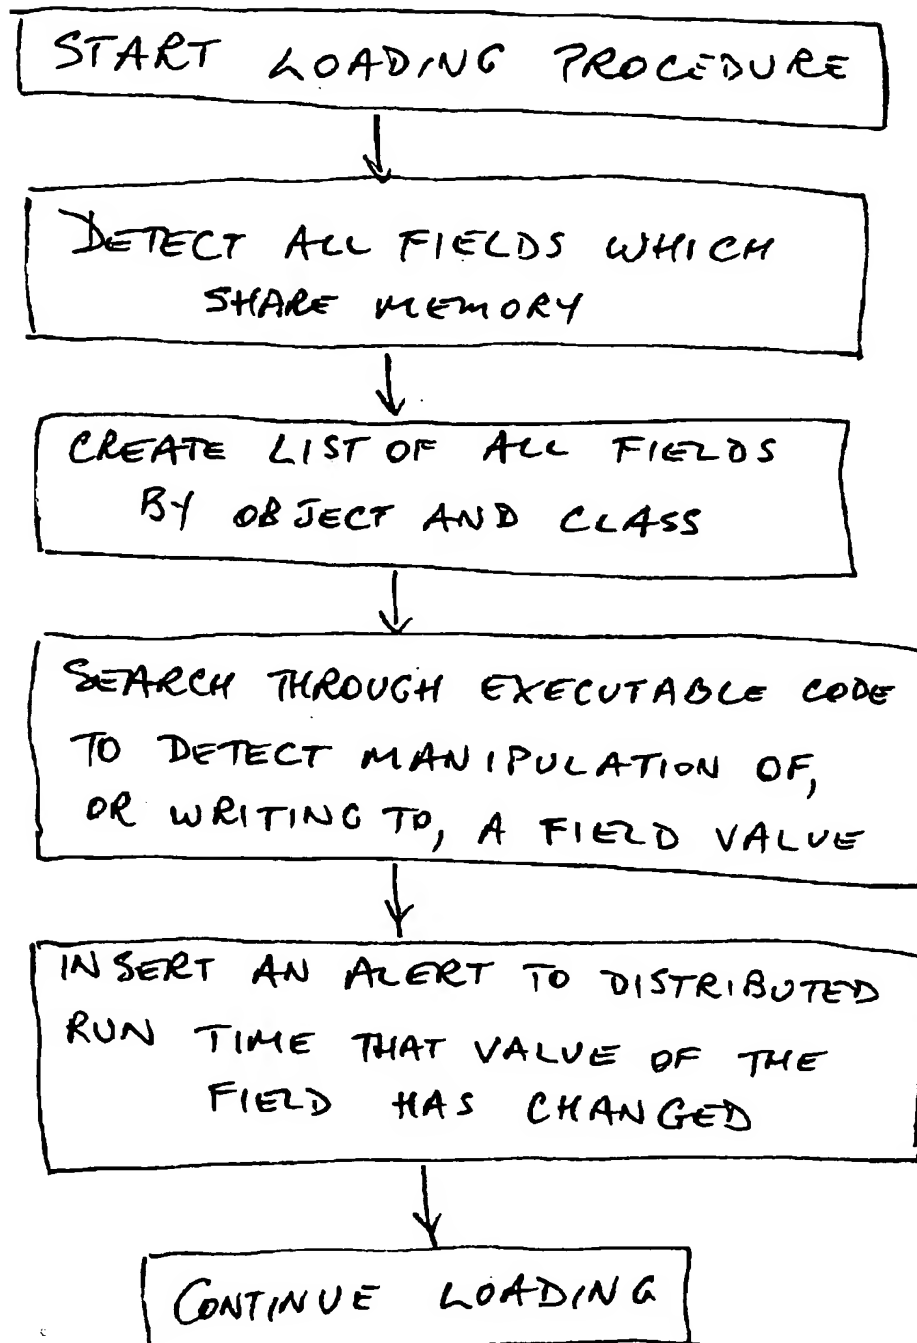 START LOADING PROCEDURE
DETECT ALL FIELDS WHICH
SHARE MEMORY
CREATE LIST OF ALL FIELDS
BY OBJECT AND CLASS
SEARCH THROUGH EXECUTABLE CODE
TO DETECT MANIPULATION OF,
OR WRITING TO, A FIELD VALUE
INSERT AN ALERT TO DISTRIBUTED
RUN TIME THAT VALUE OF THE
FIELD HAS CHANGED
CONTINUE LOADING